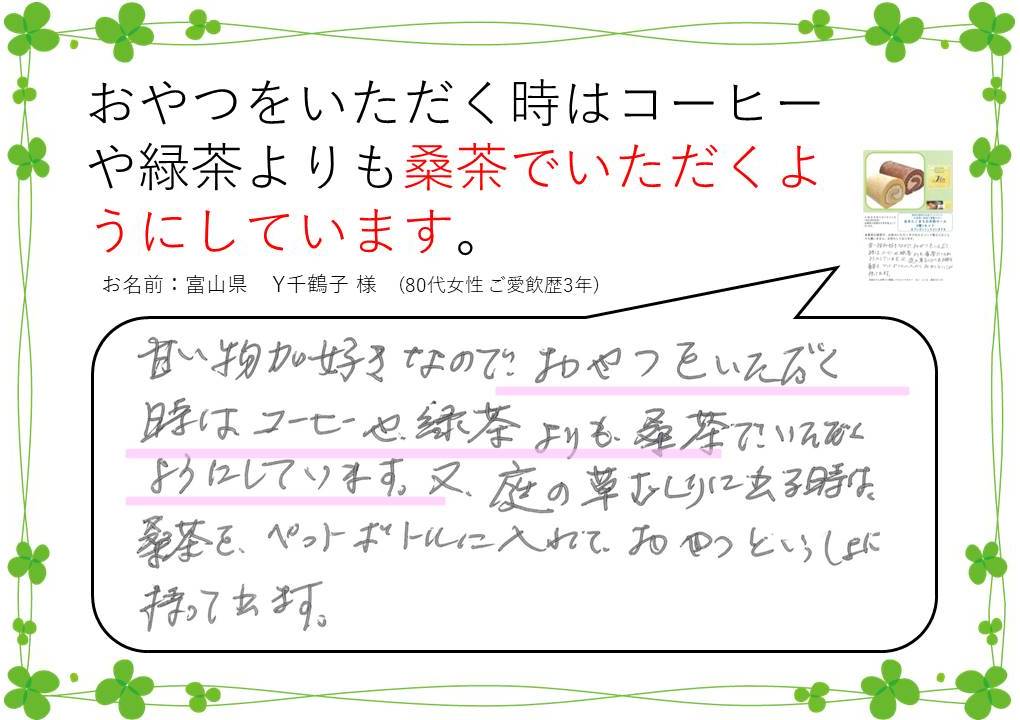 おやつをいただく時はコーヒー
や緑茶よりも桑茶でいただくよ
うにしています。
お名前：富山県　Y千鶴子 様　(80代女性 ご愛飲歴3年)
甘い物が好きなので、おやつをいただく
時はコーヒーや、緑茶よりも、桑茶でいただく
ようにしています。又、庭の草むしりに出る時は、
桑茶を、ペットボトルに入れて、おやつといっしょに
持って出ます。